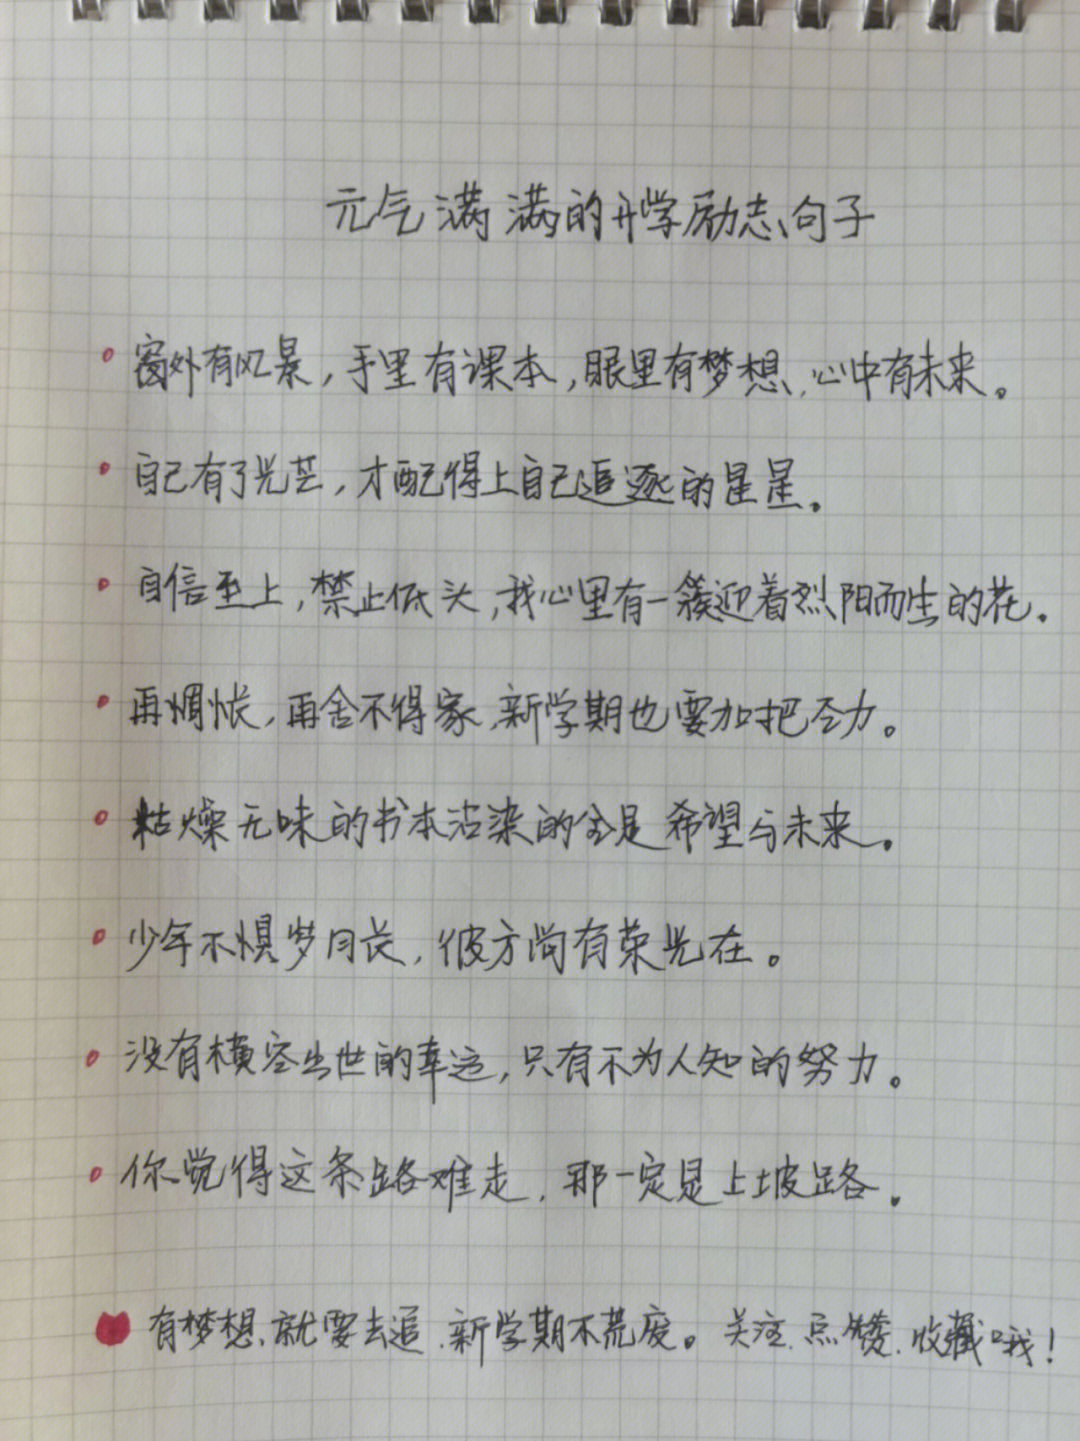 元气满满的开学励志句子
窗外有风景，手里有课本，眼里有梦想，心中有未来。
自己有了光芒，才配得上自己追逐的星星。
自信至上，禁止低头，我心里有一簇迎着烈阳而生的花。
再惆怅，再舍不得家，新学期也要加把劲力。
枯燥无味的书本沾染的全是希望与未来。
少年不惧岁月长，彼方尚有荣光在。
没有横空出世的幸运，只有不为人知的努力。
你觉得这条路难走，那一定是上坡路。
有梦想，就要去追，新学期不荒废。关注，点赞，收藏哦！